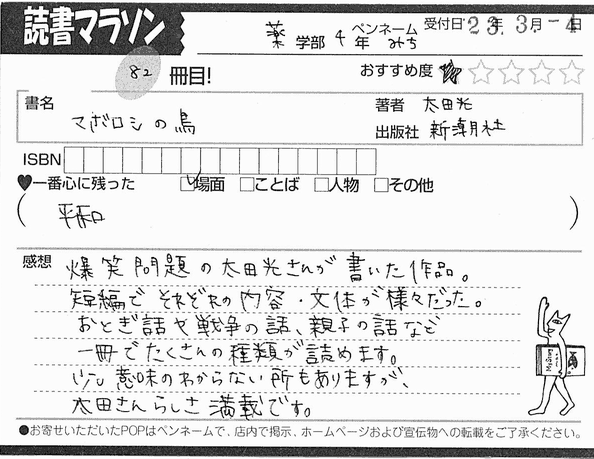 読書マラソン
薬 学部 4 年 ペンネーム みち 受付日 23.3.-4
82 冊目! おすすめ度 ★☆☆☆☆
書名 マボロシの鳥
著者 太田光
出版社 新潮社
ISBN
♥一番心に残った ☑場面 □ことば □人物 □その他
( 平和 )
感想 爆笑問題の太田光さんが書いた作品。
短編でそれぞれの内容・文体が様々だった。
おとぎ話や戦争の話、親子の話など
一冊でたくさんの種類が読めます。
少し意味のわからない所もありますが、
太田さんらしさ満載です。
●お寄せいただいたPOPはペンネームで、店内で掲示、ホームページおよび宣伝物への転載をご了承ください。